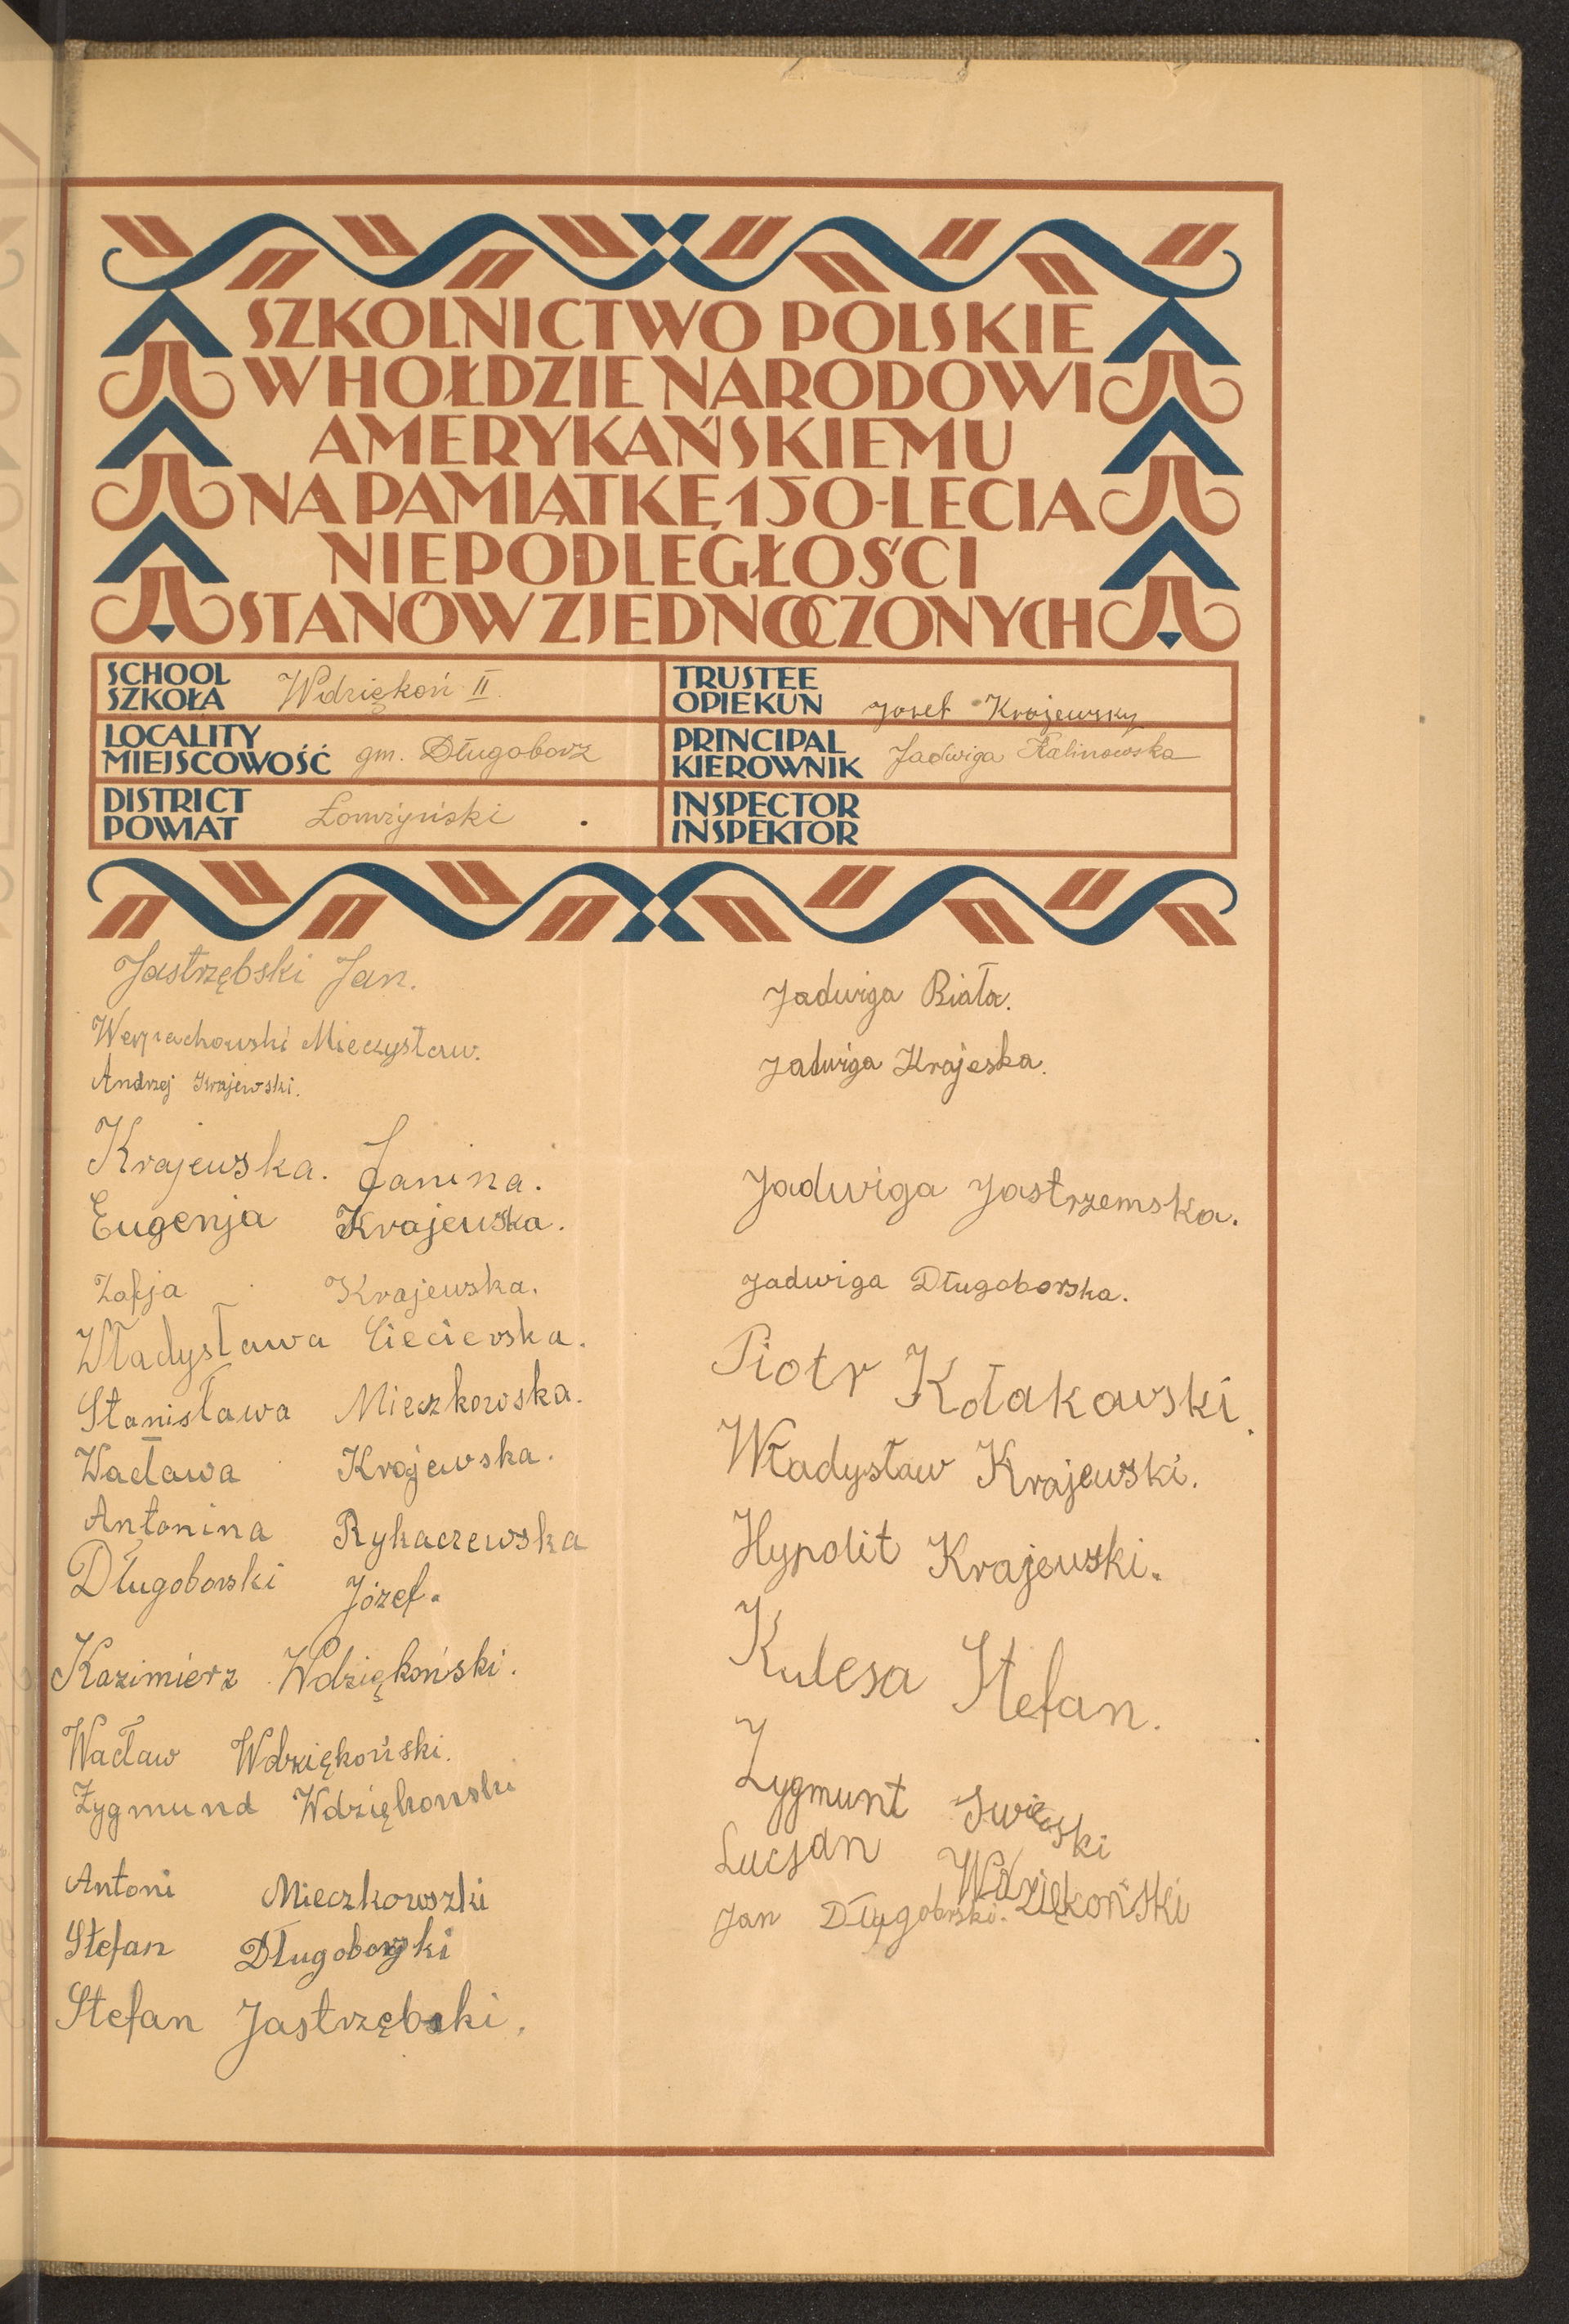 SZKOLNICTWO POLSKIE
W HOŁDZIE NARODOWI
AMERYKAŃSKIEMU
NA PAMIĄTKĘ 150-LECIA
NIEPODLEGŁOŚCI
STANÓW ZJEDNOCZONYCH
SCHOOL
SZKOŁA Wdziękoń II
LOCALITY
MIEJSCOWOŚĆ gm. Długoborz
DISTRICT
POWIAT Łomżyński
TRUSTEE
OPIEKUN Josef Krajewsky
PRINCIPAL
KIEROWNIK Jadwiga Kalinowska
INSPECTOR
INSPEKTOR
Jastrzębski Jan.
Mieczysław.
Andrzej Krajewski.
Krajewska. Janina.
Eugenja Krajewska.
Zofja Krajewska.
Władysława Ciecierska.
Stanisława Mieczkowska.
Wacława Krajewska.
Antonina Rykaczewska
Długoborski Józef.
Kazimierz Wdziękoński.
Wacław Wdziękoński.
Zygmund Wdziękonski
Antoni Mieczkowszki
Stefan Długoborski
Stefan Jastrzębski.
Jadwiga Biała.
Jadwiga Krajeska.
Jadwiga Jastrzemska.
Jadwiga Długoborska.
Piotr Kołakowski.
Władysław Krajewski.
Hypolit Krajewski.
Kulesa Stefan.
Zygmunt
Lucjan Wdziękoński
Jan Długoborski.